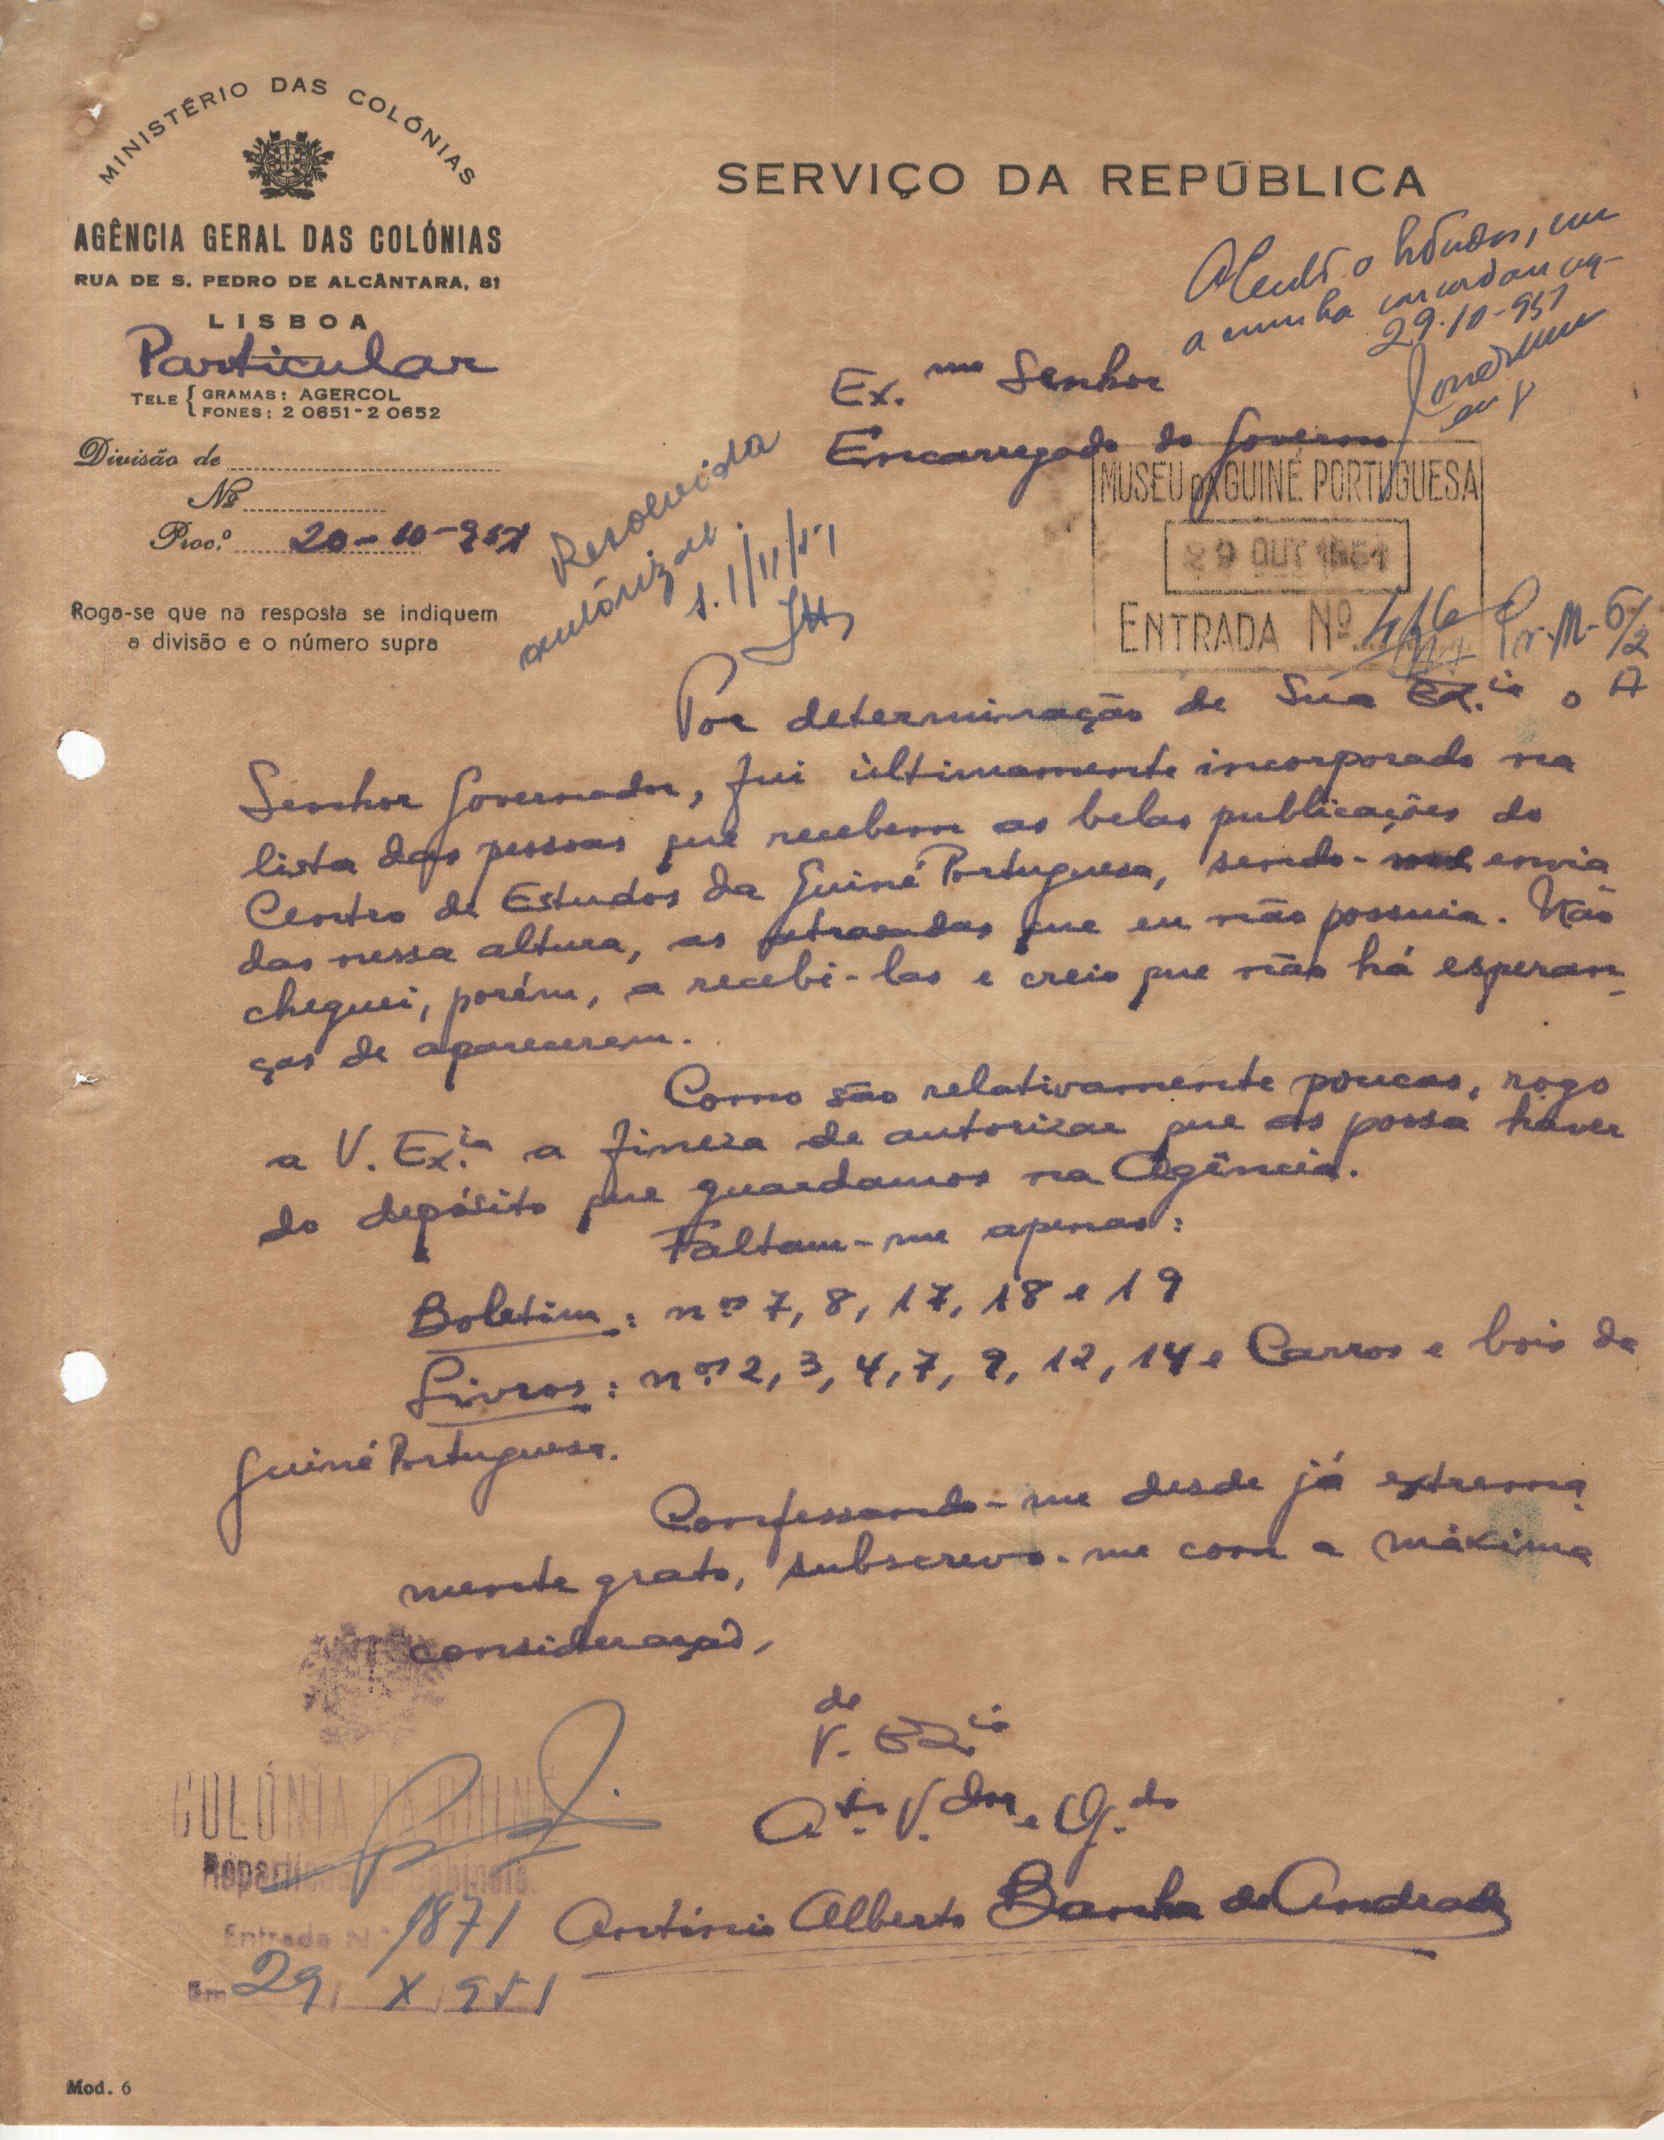 MINISTÉRIO DAS COLÓNIAS
AGÊNCIA GERAL DAS COLÓNIAS
RUA DE S. PEDRO DE ALCÂNTARA, 81
LISBOA
Particular
TELE { GRAMAS: AGERCOL
FONES: 2 0651 - 2 0652
Divisão de
Nº
Proc.º 20-10-951
Roga-se que na resposta se indiquem
a divisão e o número supra
SERVIÇO DA REPÚBLICA
a minha concordância
29-10-951
Ex.mo Senhor
Encarregado do Governo
MUSEU DA GUINÉ PORTUGUESA
29 OUT 1951
ENTRADA Nº 446
Resolvida
autorizar.
1/11/51
Por determinação de Sua Ex.cia o
Senhor Governador, fui ùltimamente incorporado na
lista das pessoas que recebem as belas publicações do
Centro de Estudos da Guiné Portuguesa, sendo-me envia
das nessa altura, as atrasadas que eu não possuia. Não
cheguei, porém, a recebê-las e creio que não há esperan-
ças de aparecerem.
Como são relativamente poucas, rogo
a V. Ex.cia a fineza de autorizar que as possa haver
do depósito que guardamos na Agência.
Faltam-me apenas:
Boletim: nos 7, 8, 17, 18 e 19
Livros: nos 2, 3, 4, 7, 9, 12, 14 e Carros e bois da
Guiné Portuguesa.
Confessando-me desde já extrema
mente grato, subscrevo-me com a máxima
consideração,
de
V. Ex.cia
At.to V.dor e Ob.do
António Alberto Banha de Andrade
COLÓNIA DA GUINÉ
Repartição do Gabinete
Entrada N.º 1871
Em 29 / X / 951
Mod. 6